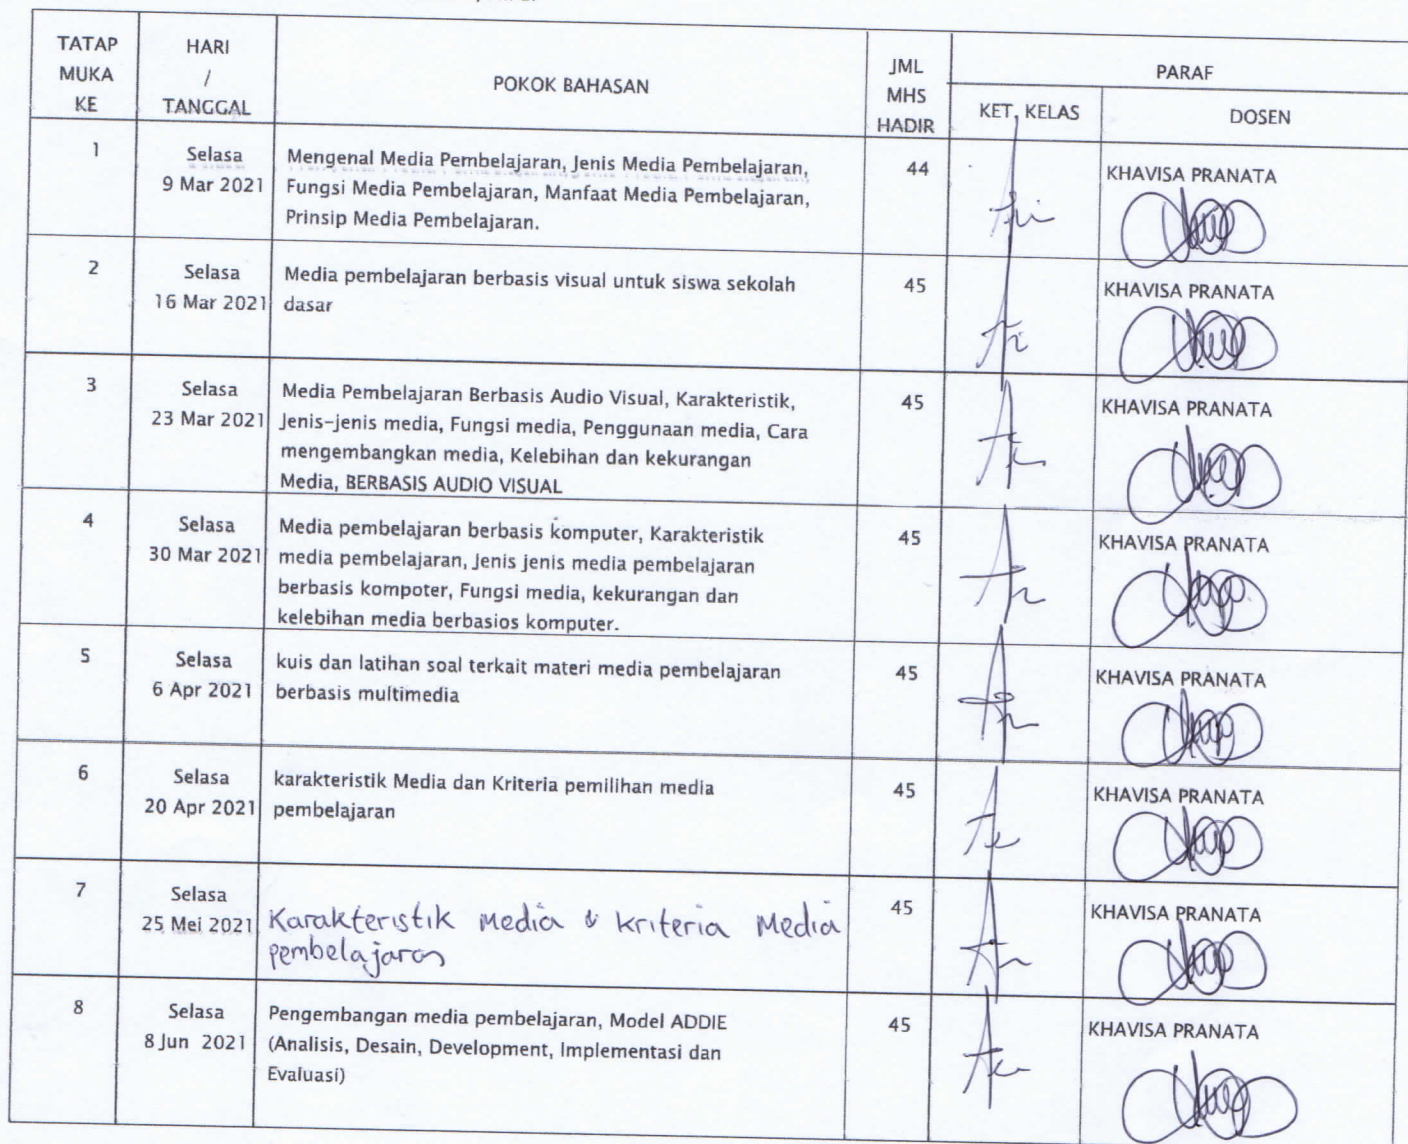 TATAP MUKA KE
HARI / TANGGAL
POKOK BAHASAN
JML MHS HADIR
PARAF
KET, KELAS
DOSEN
1
Selasa
9 Mar 2021
Mengenal Media Pembelajaran, Jenis Media Pembelajaran,
Fungsi Media Pembelajaran, Manfaat Media Pembelajaran,
Prinsip Media Pembelajaran.
44
KHAVISA PRANATA
2
Selasa
16 Mar 2021
Media pembelajaran berbasis visual untuk siswa sekolah
dasar
45
KHAVISA PRANATA
3
Selasa
23 Mar 2021
Media Pembelajaran Berbasis Audio Visual, Karakteristik,
Jenis-jenis media, Fungsi media, Penggunaan media, Cara
mengembangkan media, Kelebihan dan kekurangan
Media, BERBASIS AUDIO VISUAL
45
KHAVISA PRANATA
4
Selasa
30 Mar 2021
Media pembelajaran berbasis komputer, Karakteristik
media pembelajaran, Jenis jenis media pembelajaran
berbasis kompoter, Fungsi media, kekurangan dan
kelebihan media berbasios komputer.
45
KHAVISA PRANATA
5
Selasa
6 Apr 2021
kuis dan latihan soal terkait materi media pembelajaran
berbasis multimedia
45
KHAVISA PRANATA
6
Selasa
20 Apr 2021
karakteristik Media dan Kriteria pemilihan media
pembelajaran
45
KHAVISA PRANATA
7
Selasa
25 Mei 2021
Karakteristik Media & kriteria Media
pembelajaran
45
KHAVISA PRANATA
8
Selasa
8 Jun 2021
Pengembangan media pembelajaran, Model ADDIE
(Analisis, Desain, Development, Implementasi dan
Evaluasi)
45
KHAVISA PRANATA